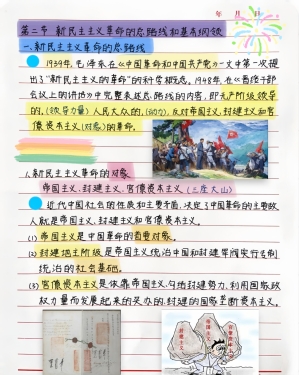 年 月 日
第二节 新民主主义革命的总路线和基本纲领
一.新民主主义革命的总路线
1939年,毛泽东在《中国革命和中国共产党》一文中第一次提
出了“新民主主义的革命”的科学概念。1948年,在《在晋绥干部
会议上的讲话》中完整表述总路线的内容,即无产阶级领导
的,(领导力量)人民大众的,(动力),反对帝国主义,封建主义和官
僚资本主义(对象)的革命。
1.新民主主义革命的对象
帝国主义、封建主义、官僚资本主义(三座大山)
近代中国社会的性质和主要矛盾,决定了中国革命的主要敌
人就是帝国主义、封建主义和官僚资本主义。
(1) 帝国主义是中国革命的首要对象。
(2) 封建地主阶级是帝国主义统治中国和封建军阀实行专制
统治的社会基础。
(3) 官僚资本主义是依靠帝国主义,勾结封建势力,利用国家政
权力量而发展起来的买办的,封建的国家垄断资本主义。
封建主义
帝国主义
官僚资本主义